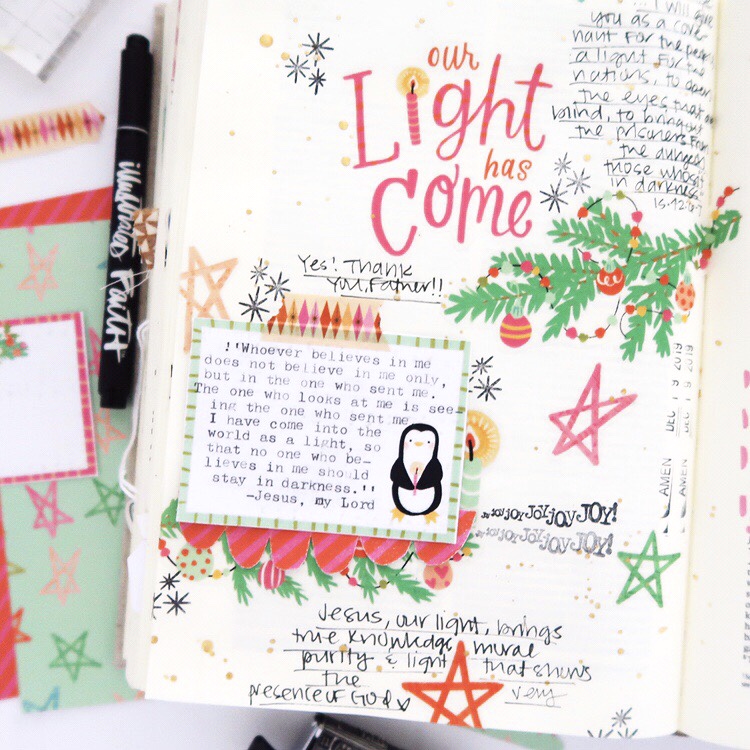 ... I will give
you as a cove
nant for the people
a light for the
nations, to open
the eyes that are
blind, to bring out
the prisoners from
the dungeon
those who sit
in darkness
our
Light has
Come
Yes! Thank
You, Father!!
illustrated Faith
!"Whoever believes in me
does not believe in me only,
but in the one who sent me.
The one who looks at me is see-
ing the one who sent me
I have come into the
world as a light, so
that no one who be-
lieves in me should
stay in darkness."
-Jesus, my Lord
DEC 19 2019
DEC 19 2019
AMEN
AMEN
joy joy JOY joy JOY!
joy joy JOY joy JOY!
Jesus, our light, brings
true knowledge, moral
purity & light that shows
the very
presence of God